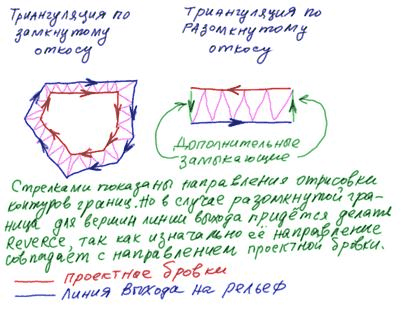 Триангуляция по
замкнутому
откосу
Триангуляция по
РАзомкнутому
откосу
Дополнительные
замыкающие
Стрелками показаны направления отрисовки
контуров границ. Но в случае разомкнутой гра-
ница для вершин линии выхода придётся делать
Reverce, так как изначально её направление
совпадает с направлением проектной бровки.
проектные бровки
Линия выхода на рельеф